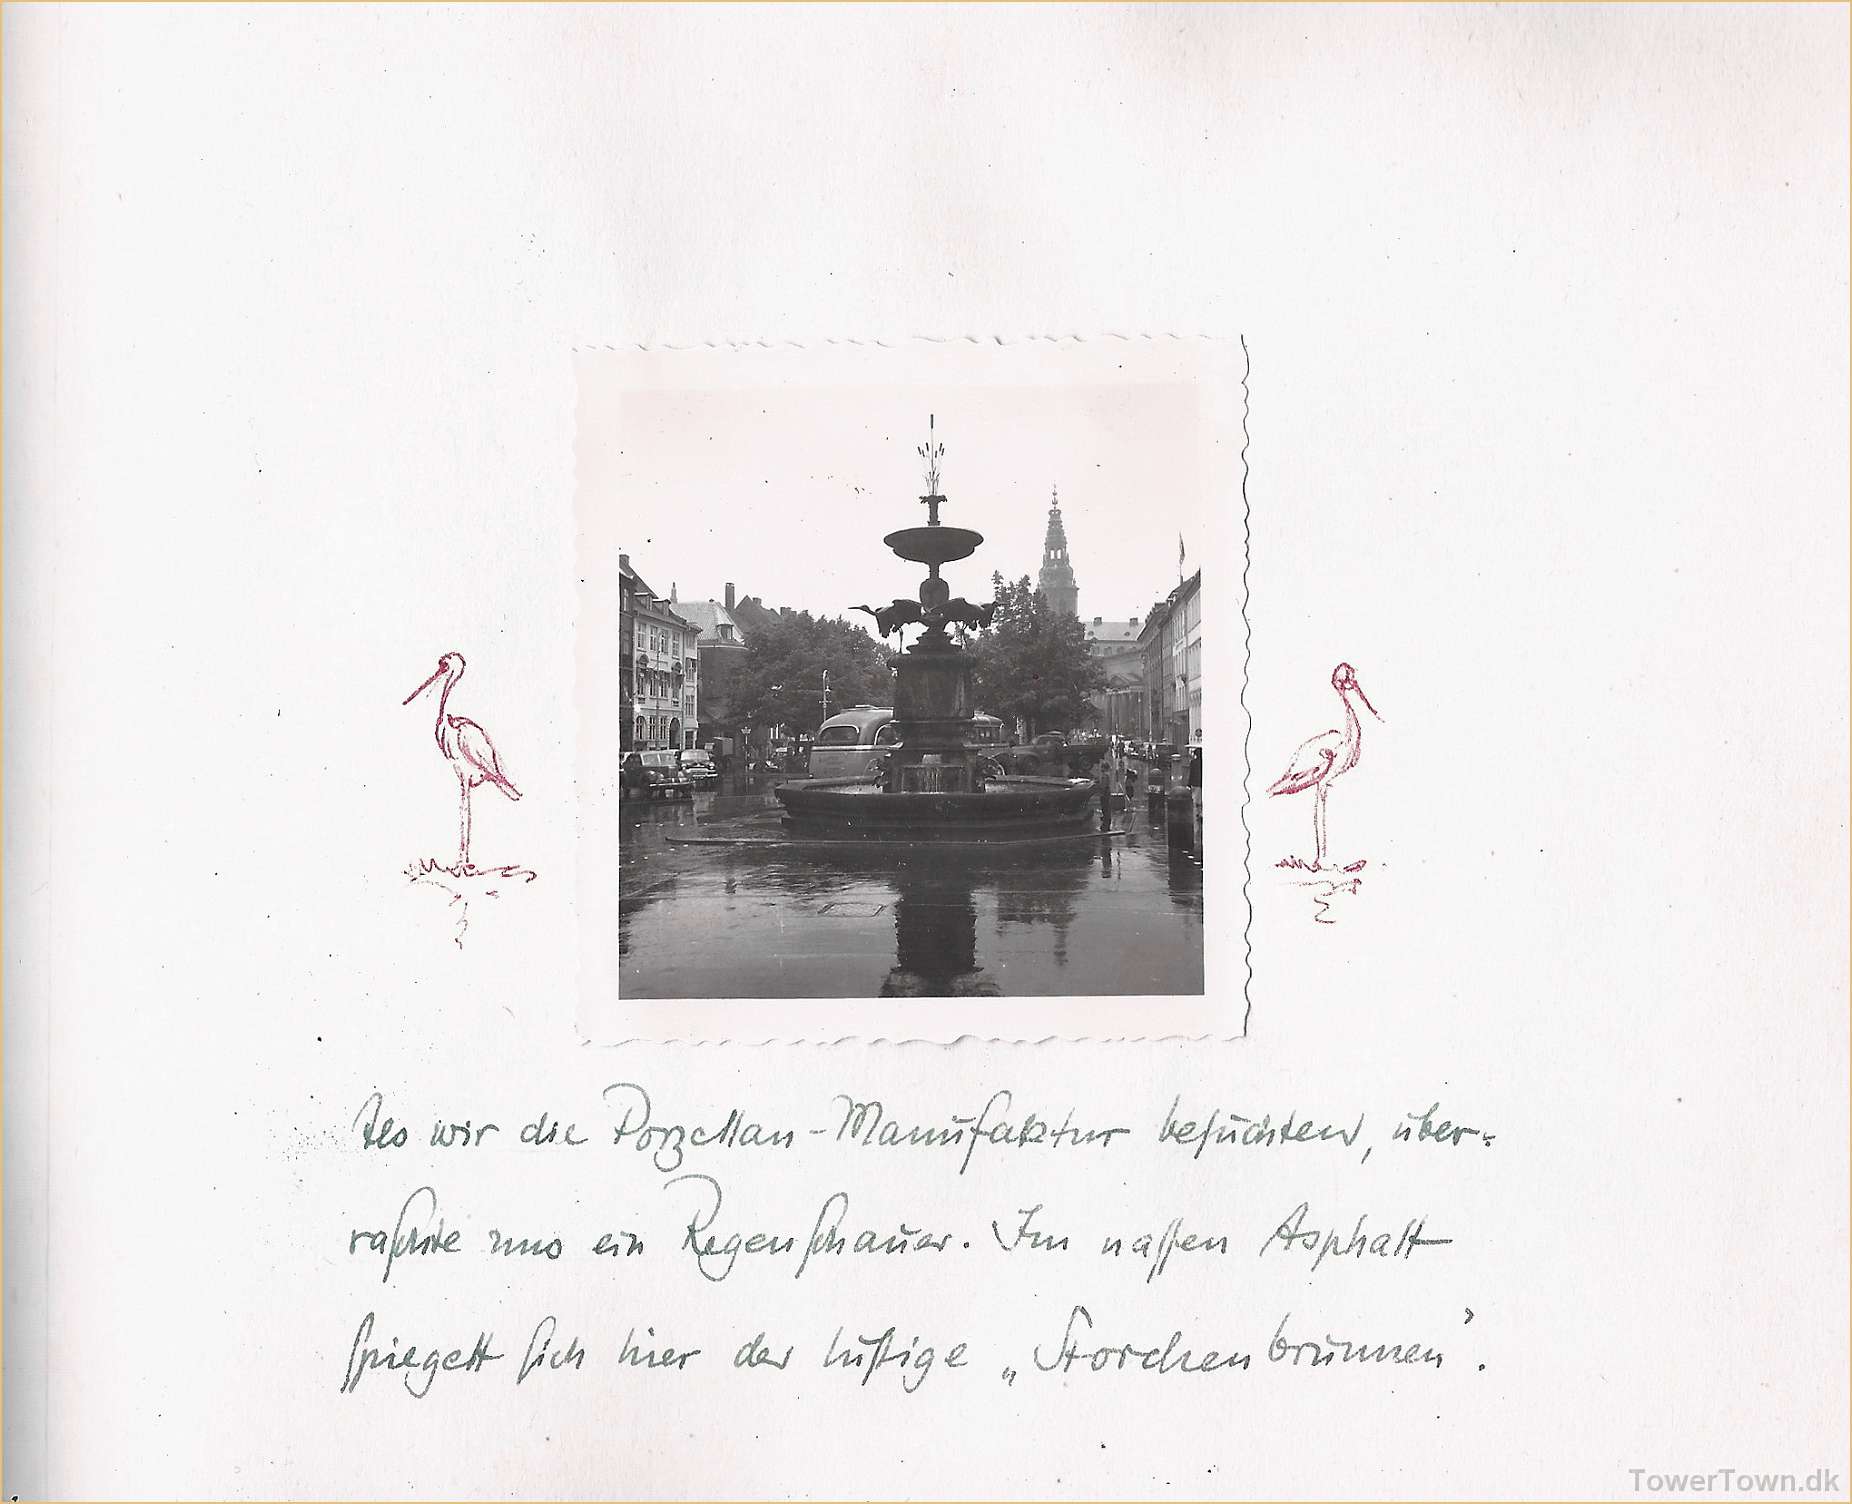 Als wir die Porzellan-Manufaktur besuchten, über-
raschte uns ein Regenschauer. Im nassen Asphalt
spiegelt sich hier der lustige „Storchenbrunnen".
TowerTown.dk